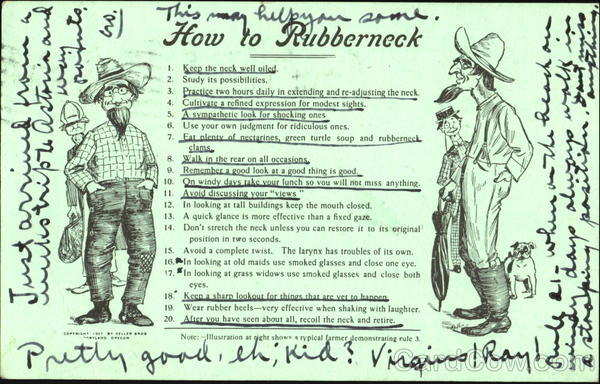 This may help you some.
How to Rubberneck
1. Keep the neck well oiled.
2. Study its possibilities.
3. Practice two hours daily in extending and re-adjusting the neck.
4. Cultivate a refined expression for modest sights.
5. A sympathetic look for shocking ones
6. Use your own judgment for ridiculous ones.
7. Eat plenty of nectarines, green turtle soup and rubberneck
clams.
8. Walk in the rear on all occasions.
9. Remember a good look at a good thing is good.
10. On windy days take your lunch so you will not miss anything.
11. Avoid discussing your "views"
12. In looking at tall buildings keep the mouth closed.
13. A quick glance is more effective than a fixed gaze.
14. Don't stretch the neck unless you can restore it to its original
position in two seconds.
15. Avoid a complete twist. The larynx has troubles of its own.
16. In looking at old maids use smoked glasses and close one eye.
17. In looking at grass widows use smoked glasses and close both
eyes.
18. Keep a sharp lookout for things that are yet to happen.
19. Wear rubber heels—very effective when shaking with laughter.
20. After you have seen about all, recoil the neck and retire.
Note:—Illustration at right shows a typical farmer demonstrating rule 3.
COPYRIGHT 1907 BY KELLER BROS
PORTLAND, OREGON
Pretty good, eh, kid? Virginis! Ray!
Just arrived from a
weeks trip to Astoria and
way
points.
Rule 21 - when on the beach on
windy days always walk in
a stooping position
CardCow.com